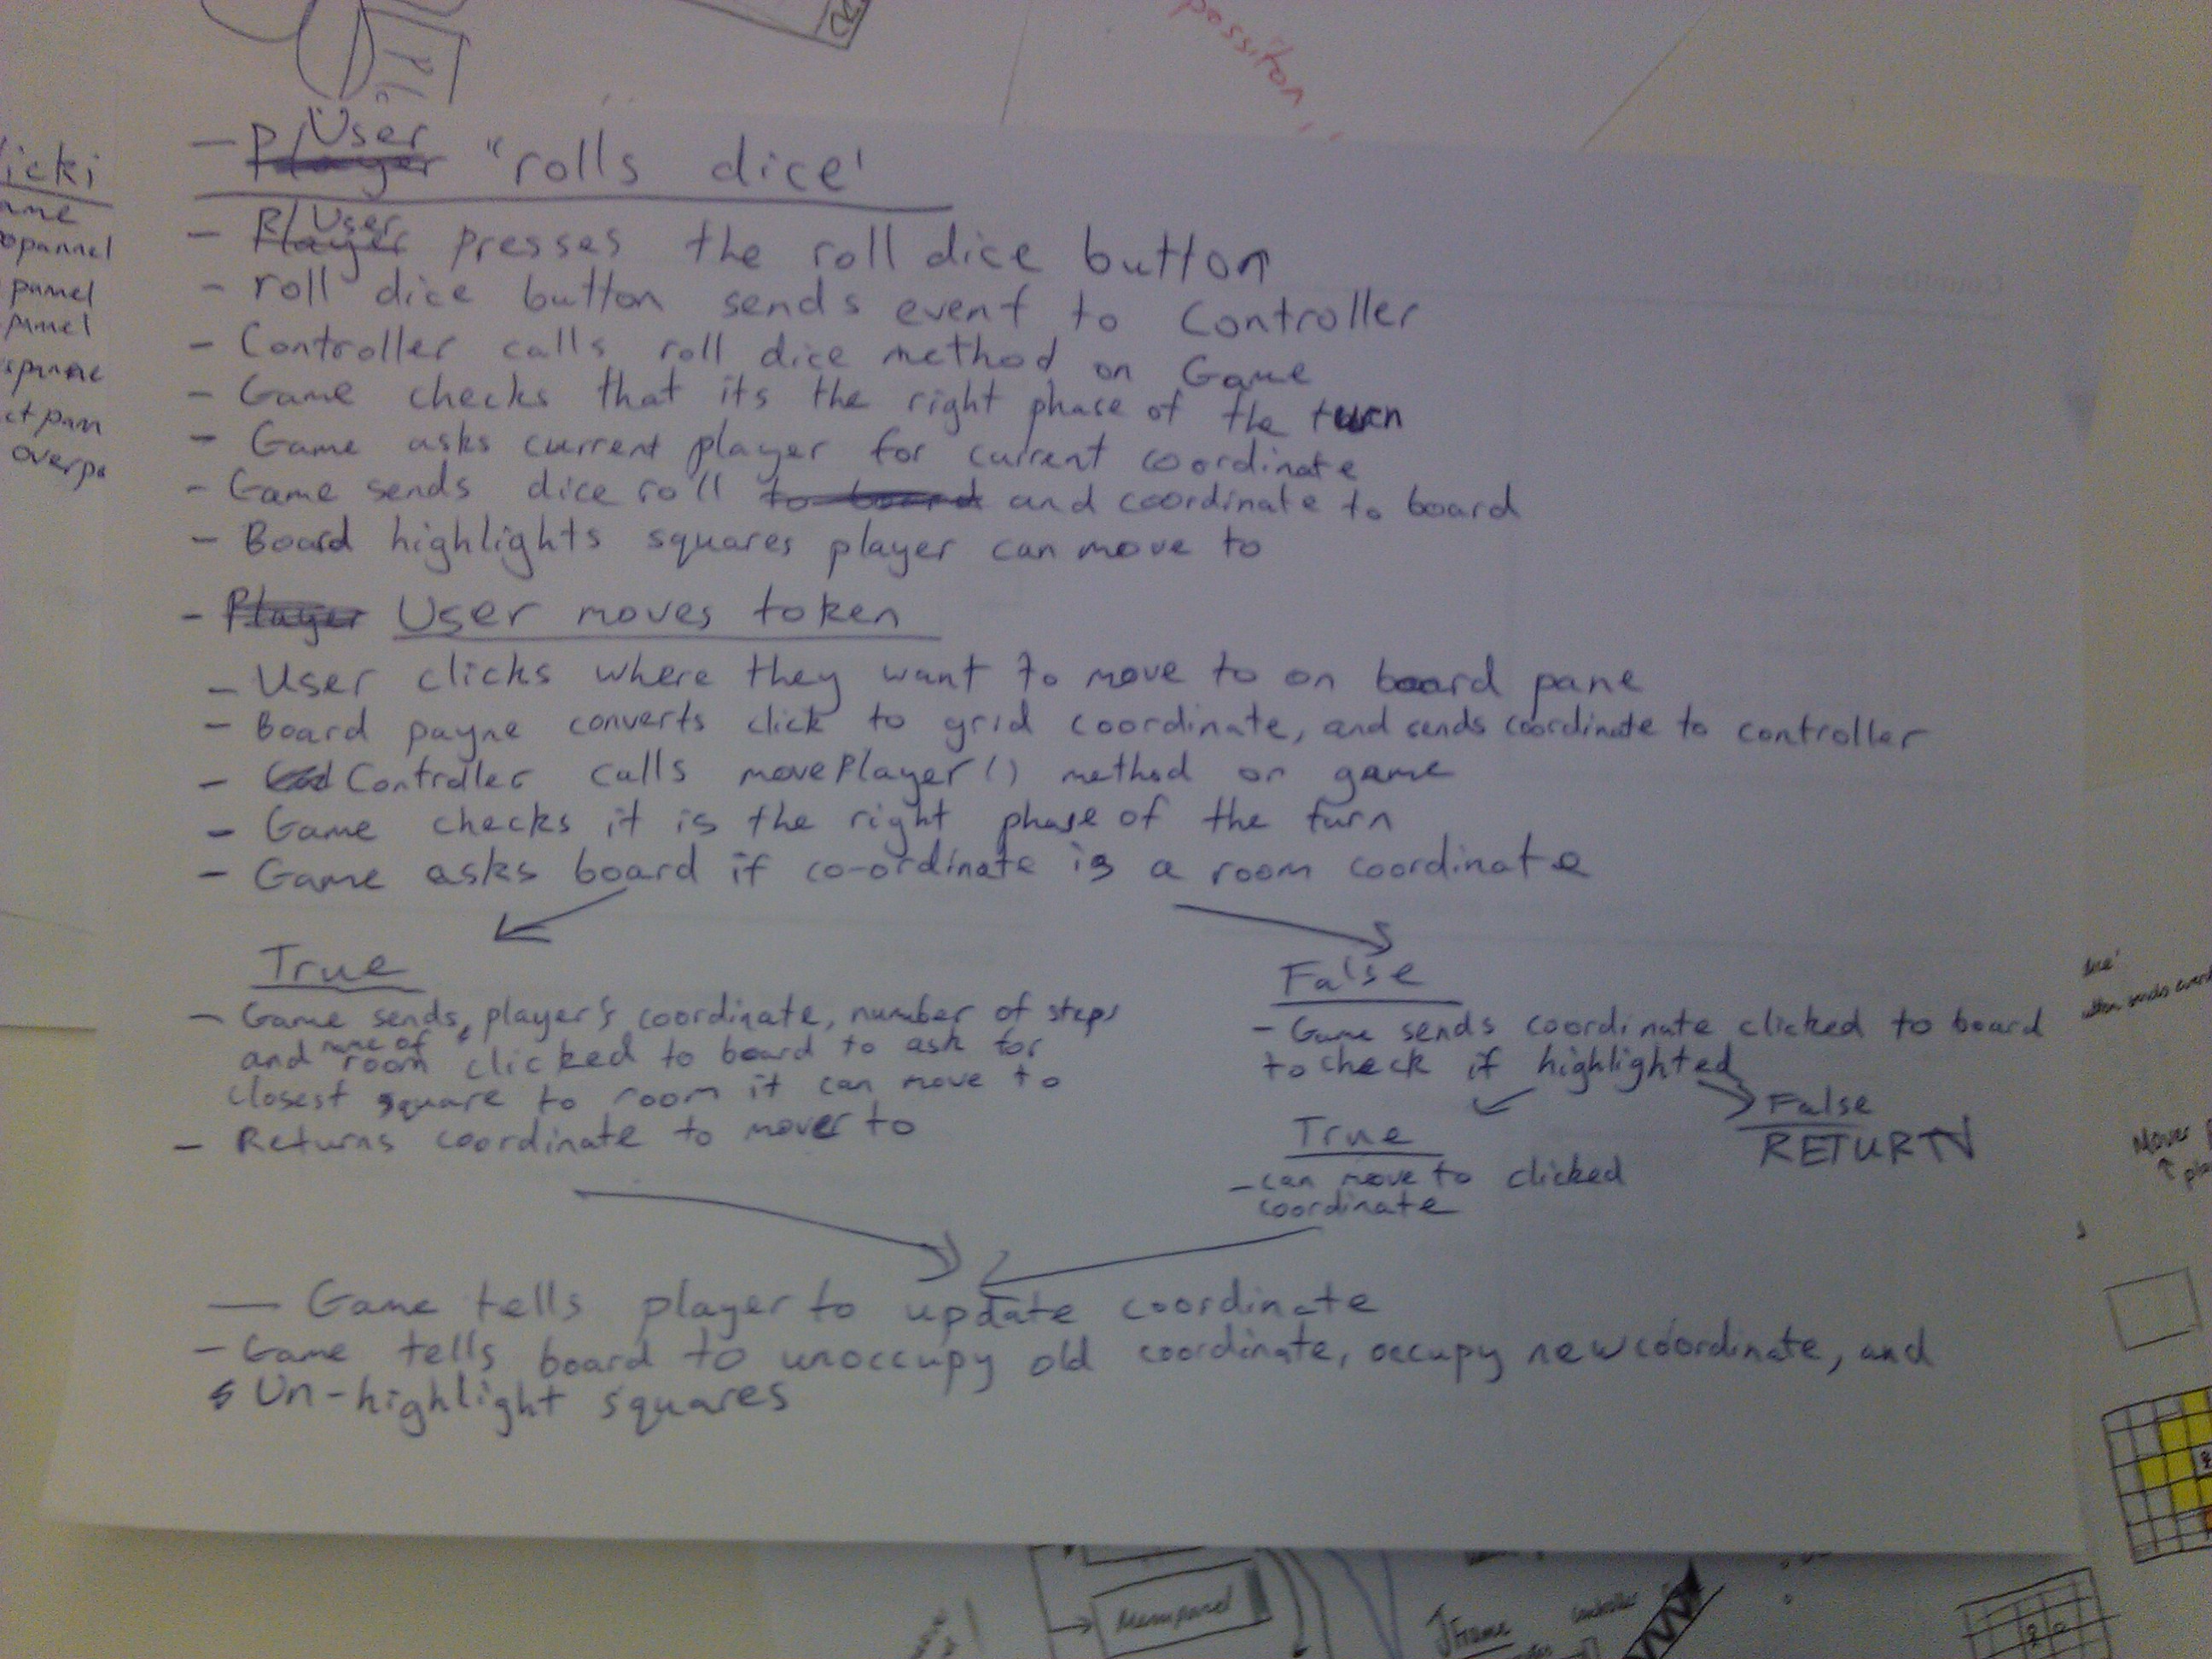 possiton
- User "rolls dice'
- User presses the roll dice button
- roll dice button sends event to Controller
- Controller calls roll dice method on Game
- Game checks that its the right phase of the turn
- Game asks current player for current coordinate
- Game sends dice roll to board and coordinate to board
- Board highlights squares player can move to
- Player User moves token
- User clicks where they want to move to on board pane
- Board payne converts click to grid coordinate, and sends coordinate to controller
- Controller calls movePlayer() method on game
- Game checks it is the right phase of the turn
- Game asks board if co-ordinate is a room coordinate
True
- Game sends, player's coordinate, number of steps
and name of room clicked to board to ask for
closest square to room it can move to
- Returns coordinate to mover to
False
- Game sends coordinate clicked to board
to check if highlighted
True
- can move to clicked
coordinate
False
RETURN
- Game tells player to update coordinate
- Game tells board to unoccupy old coordinate, occupy new coordinate, and
Un-highlight squares
icki
ame
pannel
pannel
overpa
Mover
JFrame